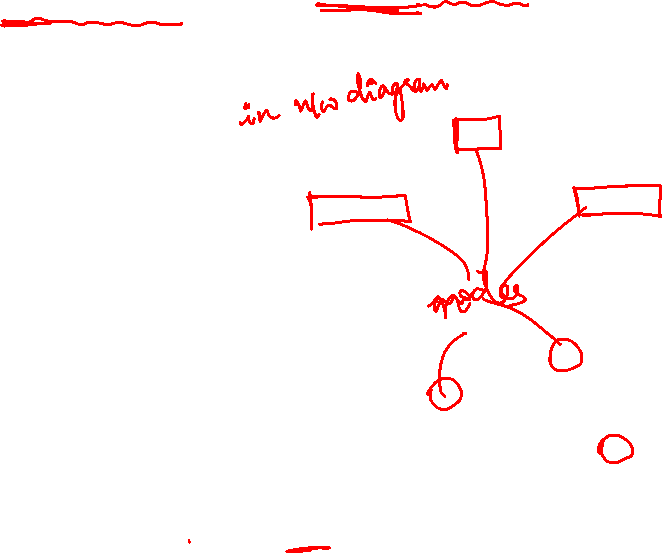 in n/w diagram
nodes